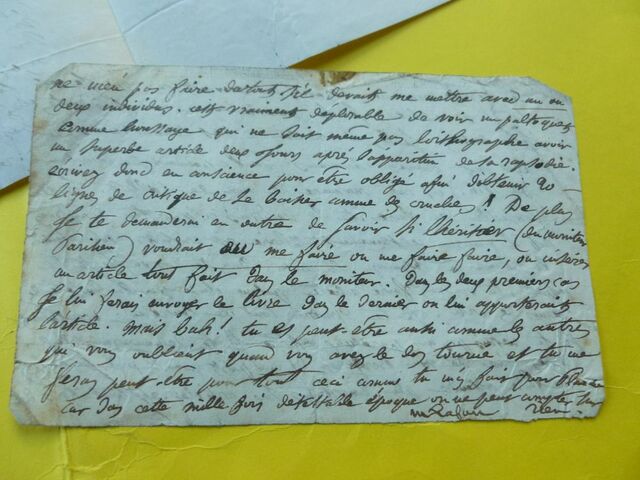 ne m'en pas faire du tout s'il devait me mettre avec un ou
deux individus. c'est vraiment deplorable de voir un paltoquet
comme qui ne sait même pas l'orthographe avoir
un superbe article deux jours après l'apparition de sa rapsodie.
écrivez donc en conscience pour être obligé afin d'obtenir 20
lignes de critique de se baiser comme des cruches! De plus
Je te demanderai en outre de savoir si lhéritier (du moniteur
Parisien) voudrait me faire ou me faire faire, ou insérer
un article tout fait dans le moniteur. Dans les deux premiers cas
Je lui ferais envoyer le livre dans le dernier on lui apporterait
l'article. Mais bah! tu es peut-être aussi comme les autres
qui vous oublient quand vous avez le dos tourné et tu me
feras peut être pour tout ceci comme tu m'as fait pour
car dans cette mille fois détestable époque on ne peut compter sur
rien.